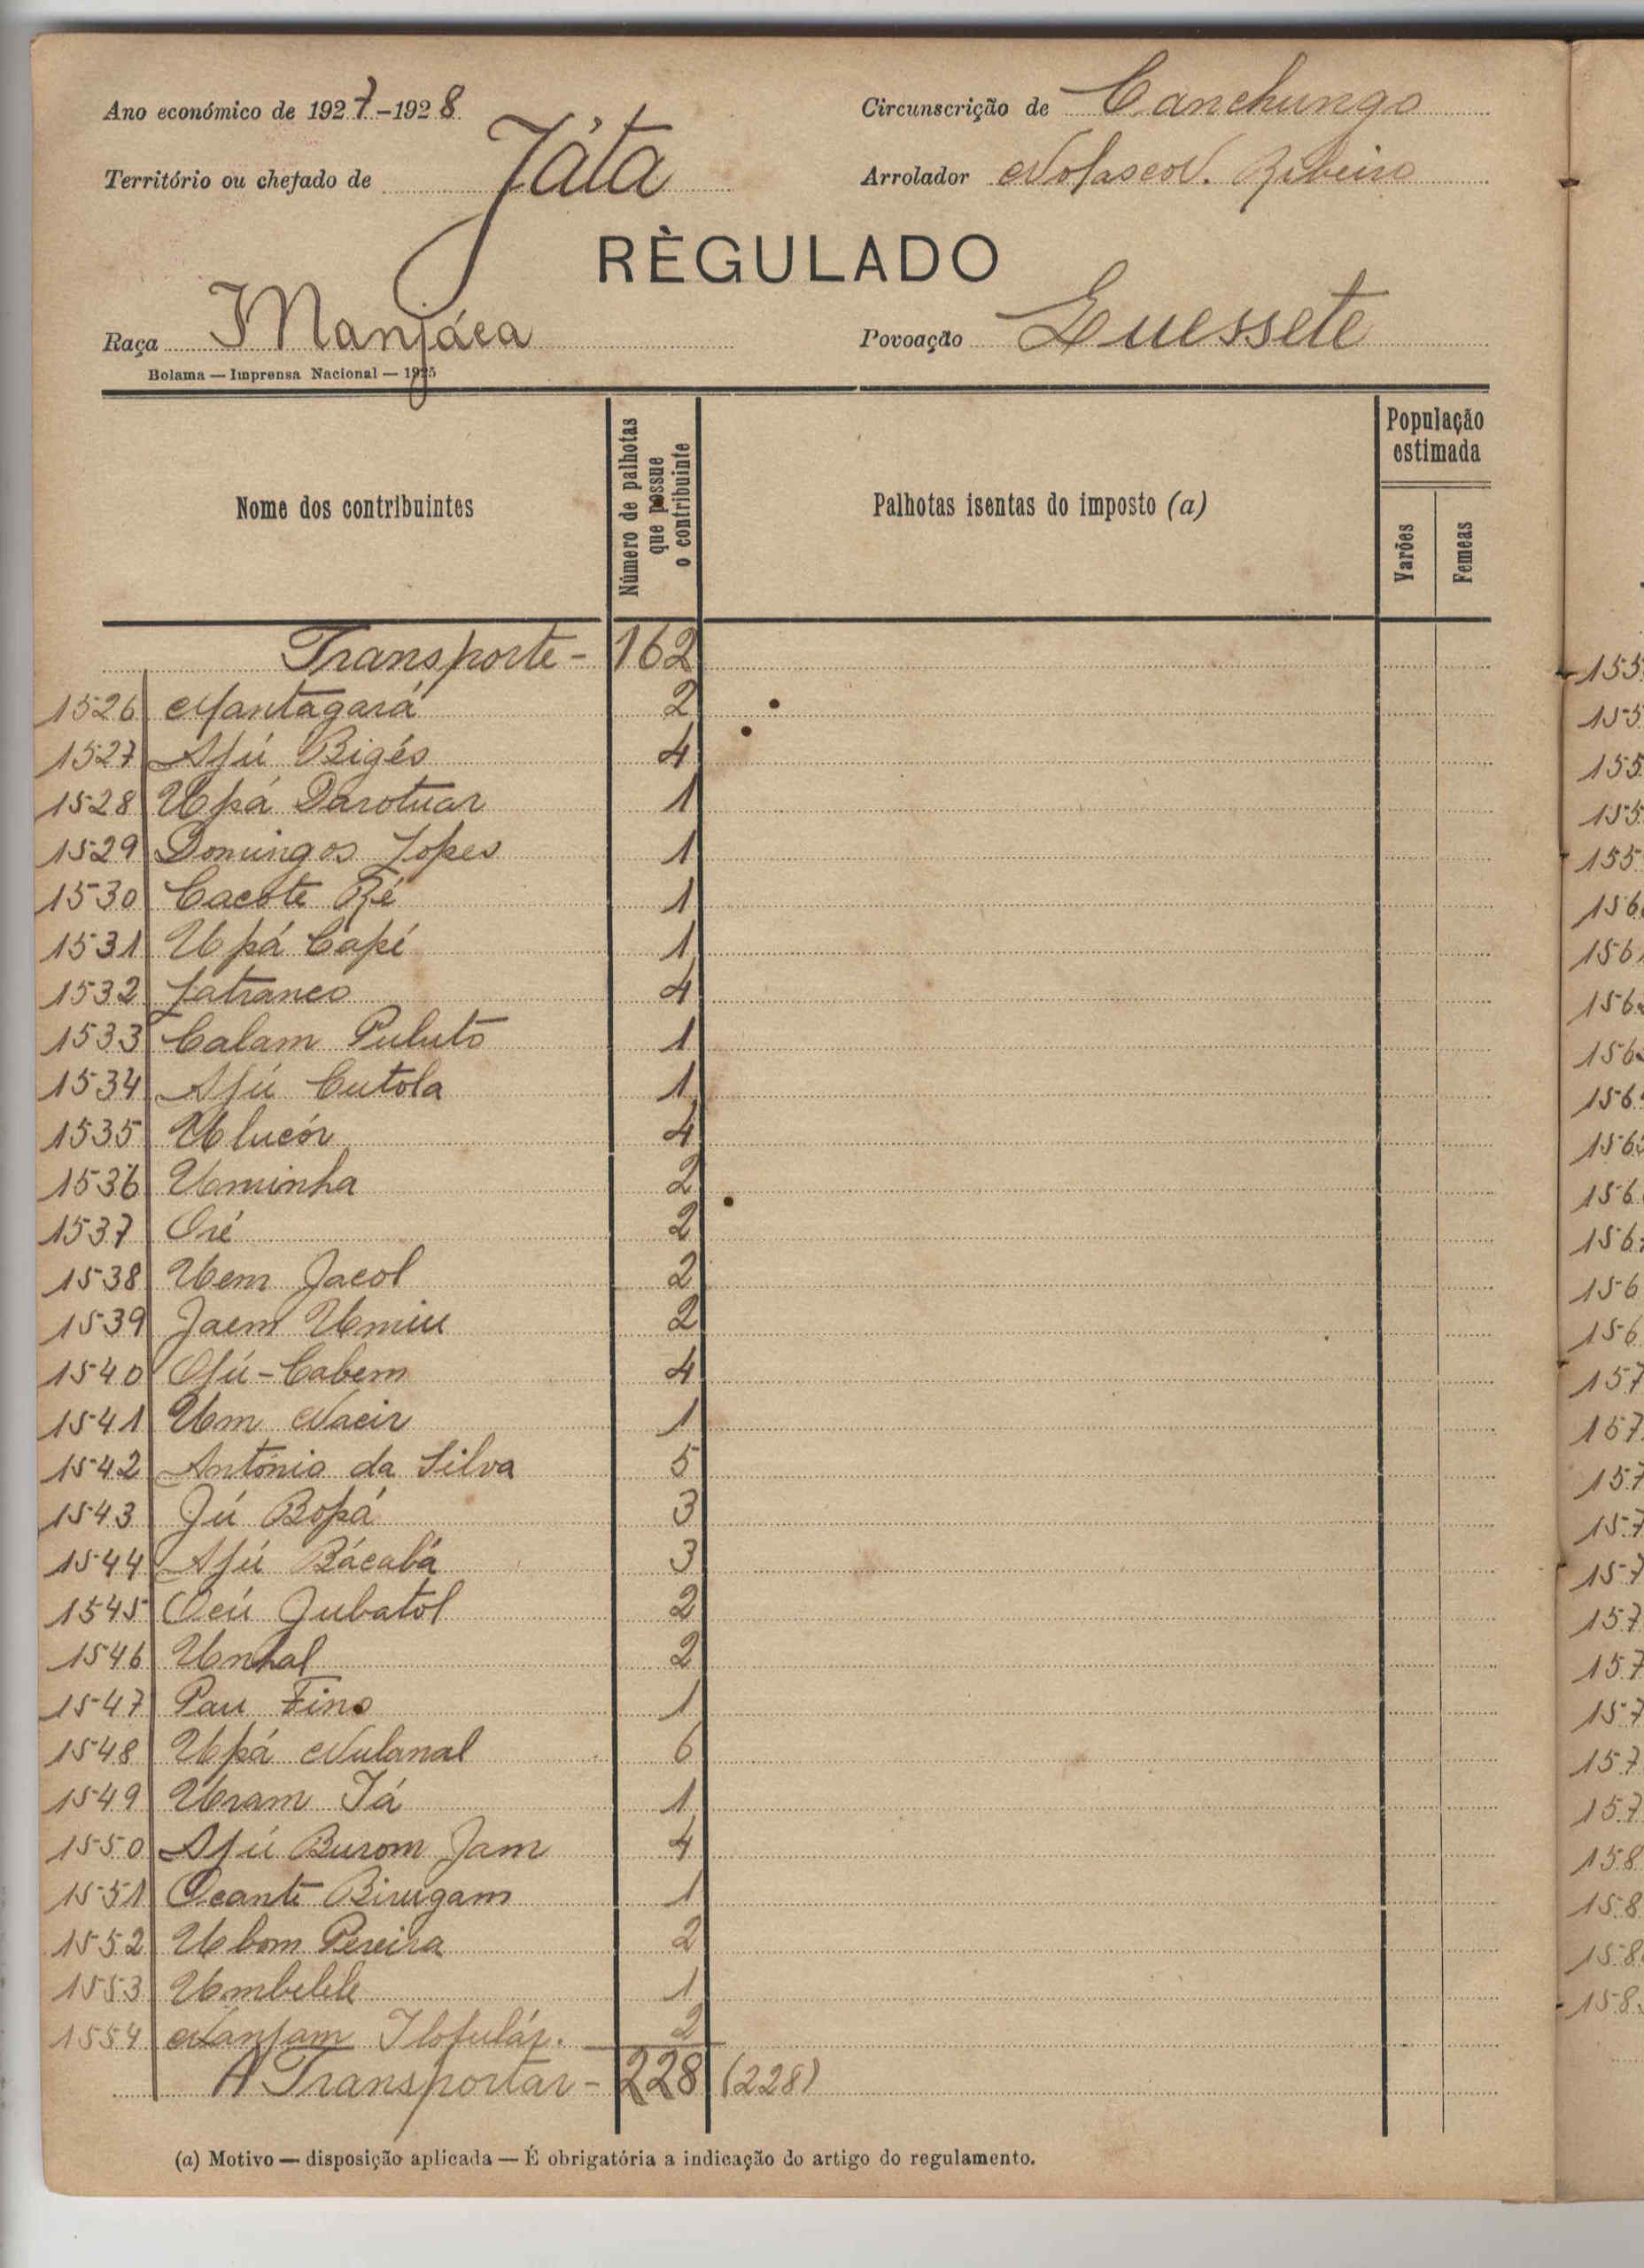 Ano económico de 1927-1928
Circunscrição de Canchungo
Território ou chefado de Játa
Arrolador Nolasco N. Ribeiro
RÈGULADO
Raça Manjáca
Povoação Quessete
Bolama — Imprensa Nacional — 1925
Nome dos contribuintes
Número de palhotas que possue o contribuinte
Palhotas isentas do imposto (a)
População estimada
Varões
Femeas
Transporte - 162
1526 Mantagará 2
1527 Afú Bigés 4
1528 Upá Darotuar 1
1529 Domingos Lopes 1
1530 Cacote Zé 1
1531 Upá Capé 1
1532 Latranco 4
1533 Calam Pulutó 1
1534 Afú Cutola 1
1535 Ulucór 4
1536 Uminha 2
1537 Oré 2
1538 Uem Jacol 2
1539 Jaem Umiu 2
1540 Ofú-Cabem 4
1541 Um Nacir 1
1542 António da Silva 5
1543 Jú Bopá 3
1544 Afú Bácabá 3
1545 Ocú Jubatol 2
1546 Unhal 2
1547 Pau Fino 1
1548 Upá Nulanal 6
1549 Uram Tá 1
1550 Afú Burom Jam 4
1551 Ocante Birugam 1
1552 Ubom Pereira 2
1553 Umbelele 1
1554 2
A Transportar - 228 (228)
(a) Motivo — disposição aplicada — É obrigatória a indicação do artigo do regulamento.